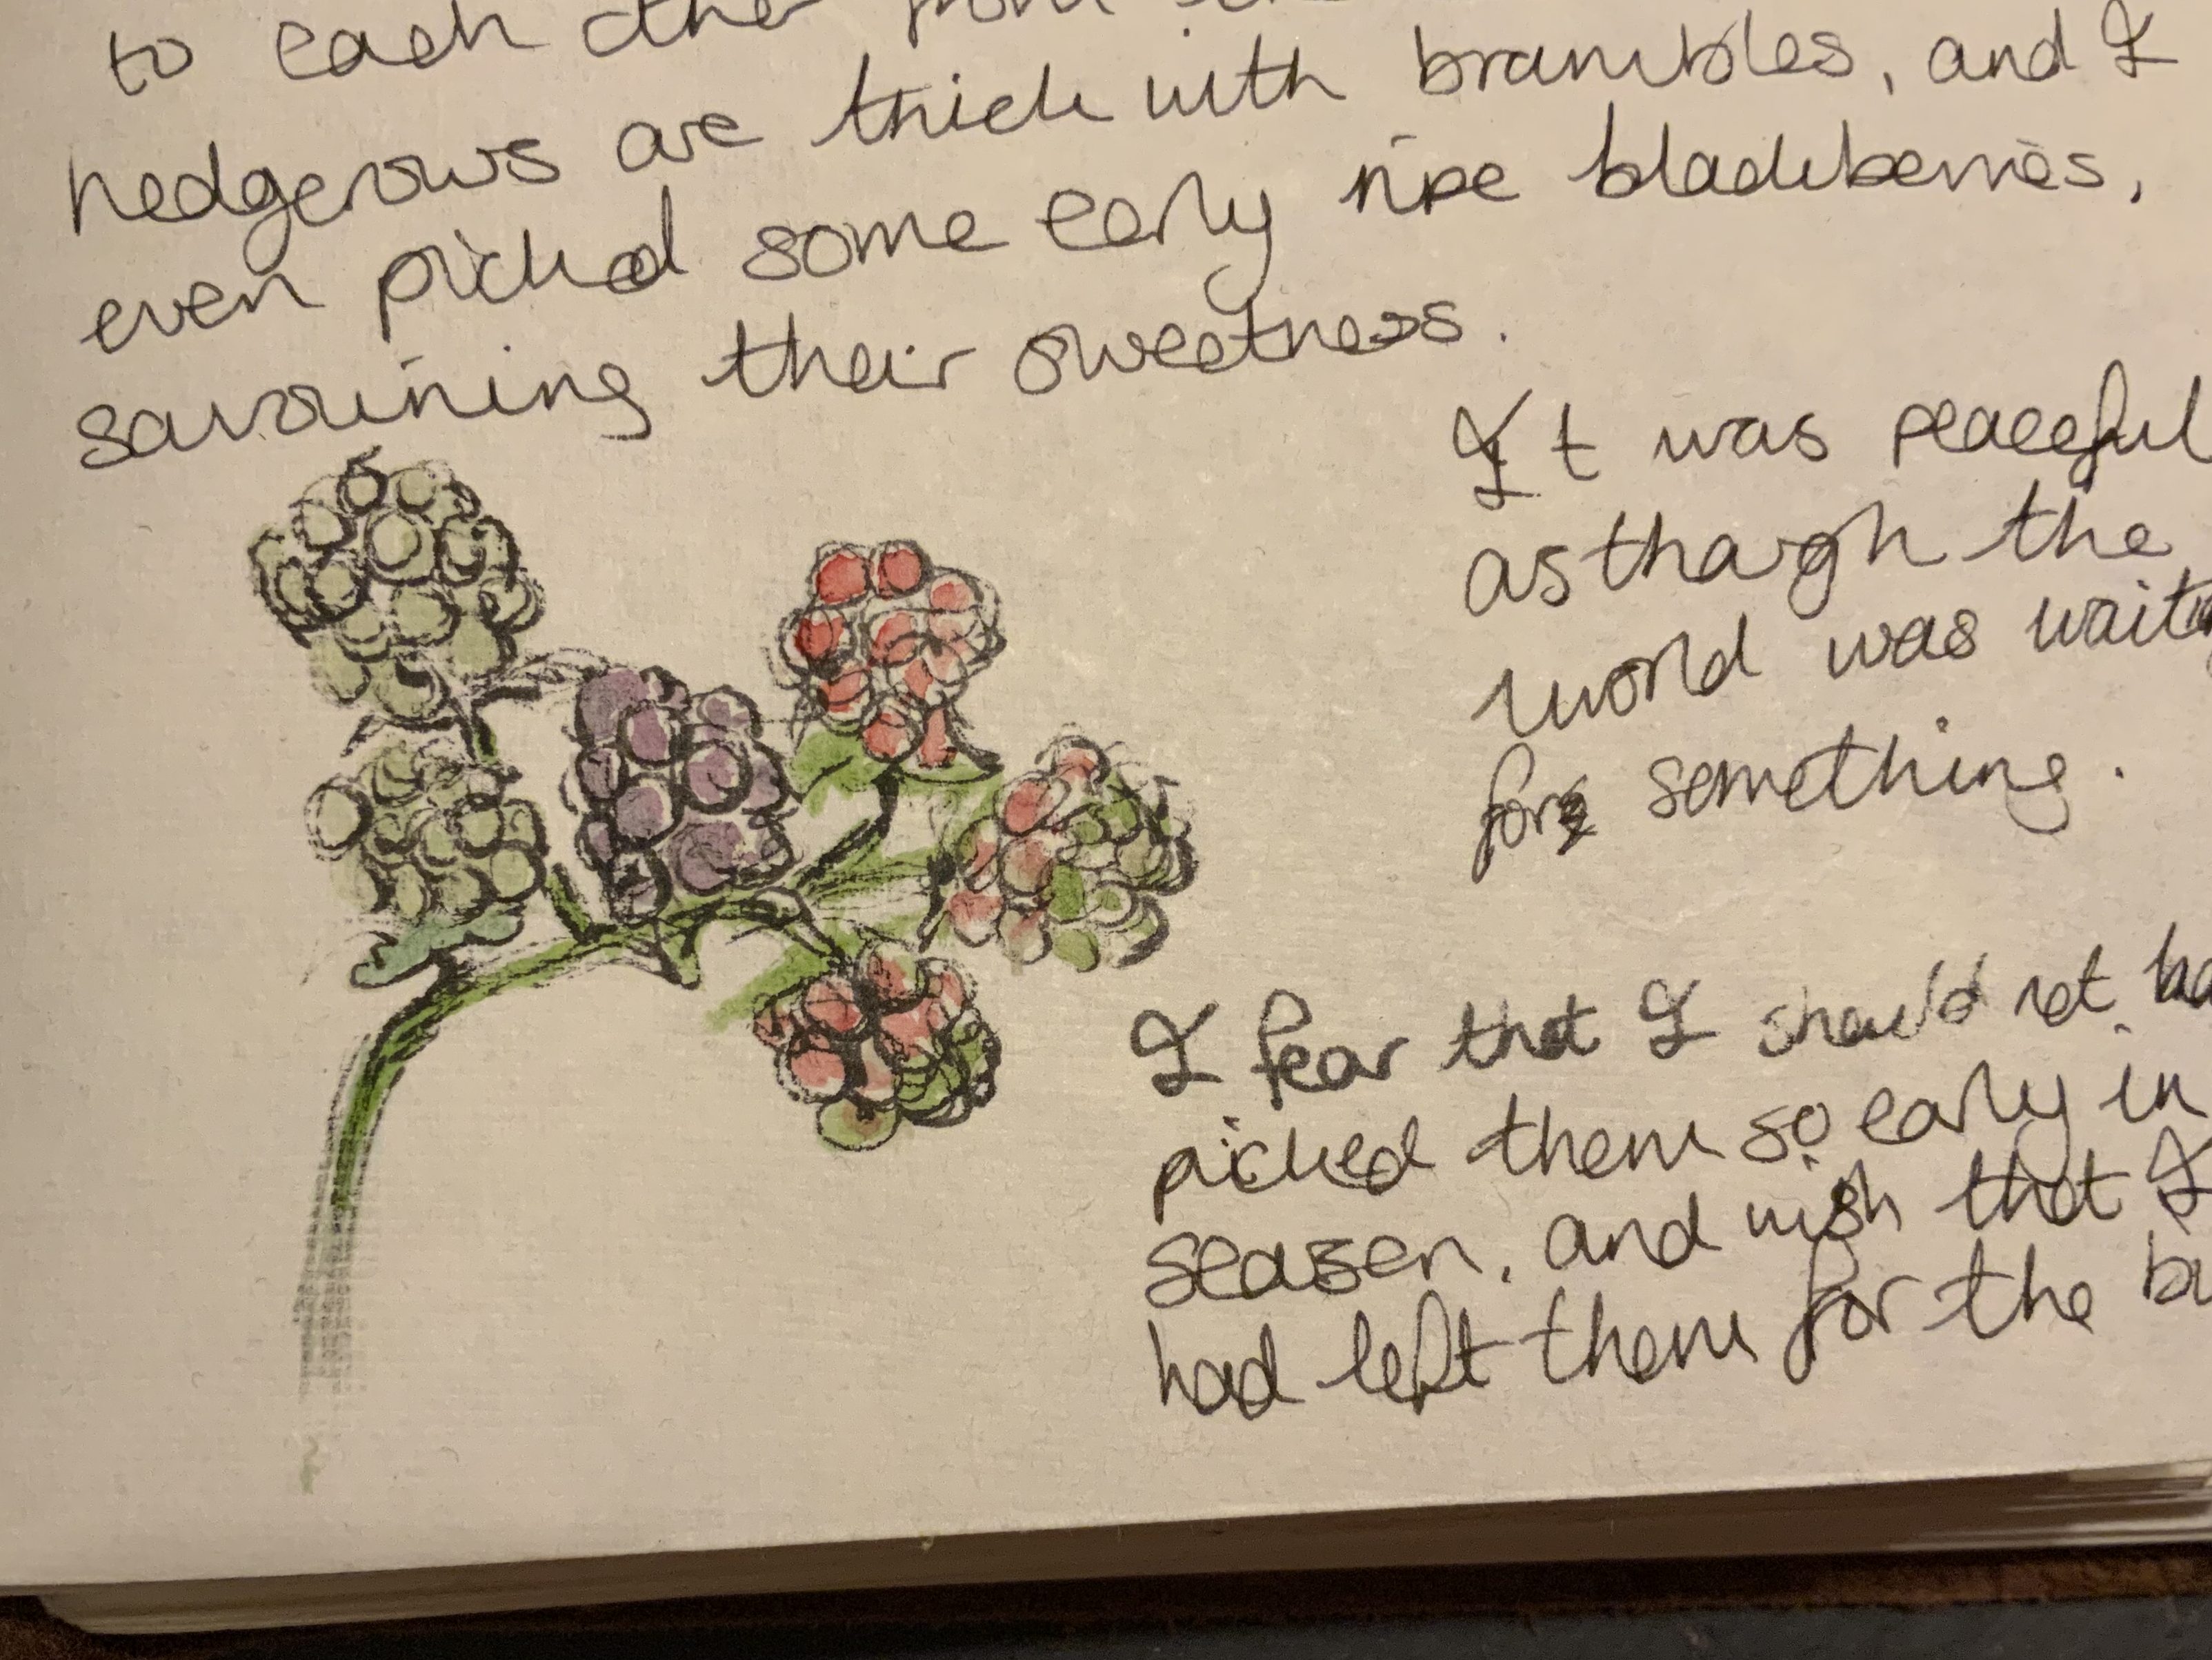 to each other from the
hedgerows are thick with brambles, and I
even picked some early ripe blackberries,
savouring their sweetness.
It was peaceful
as though the
world was waiting
for something.
I fear that I should not
picked them so early in
season, and wish that I
had left them for the